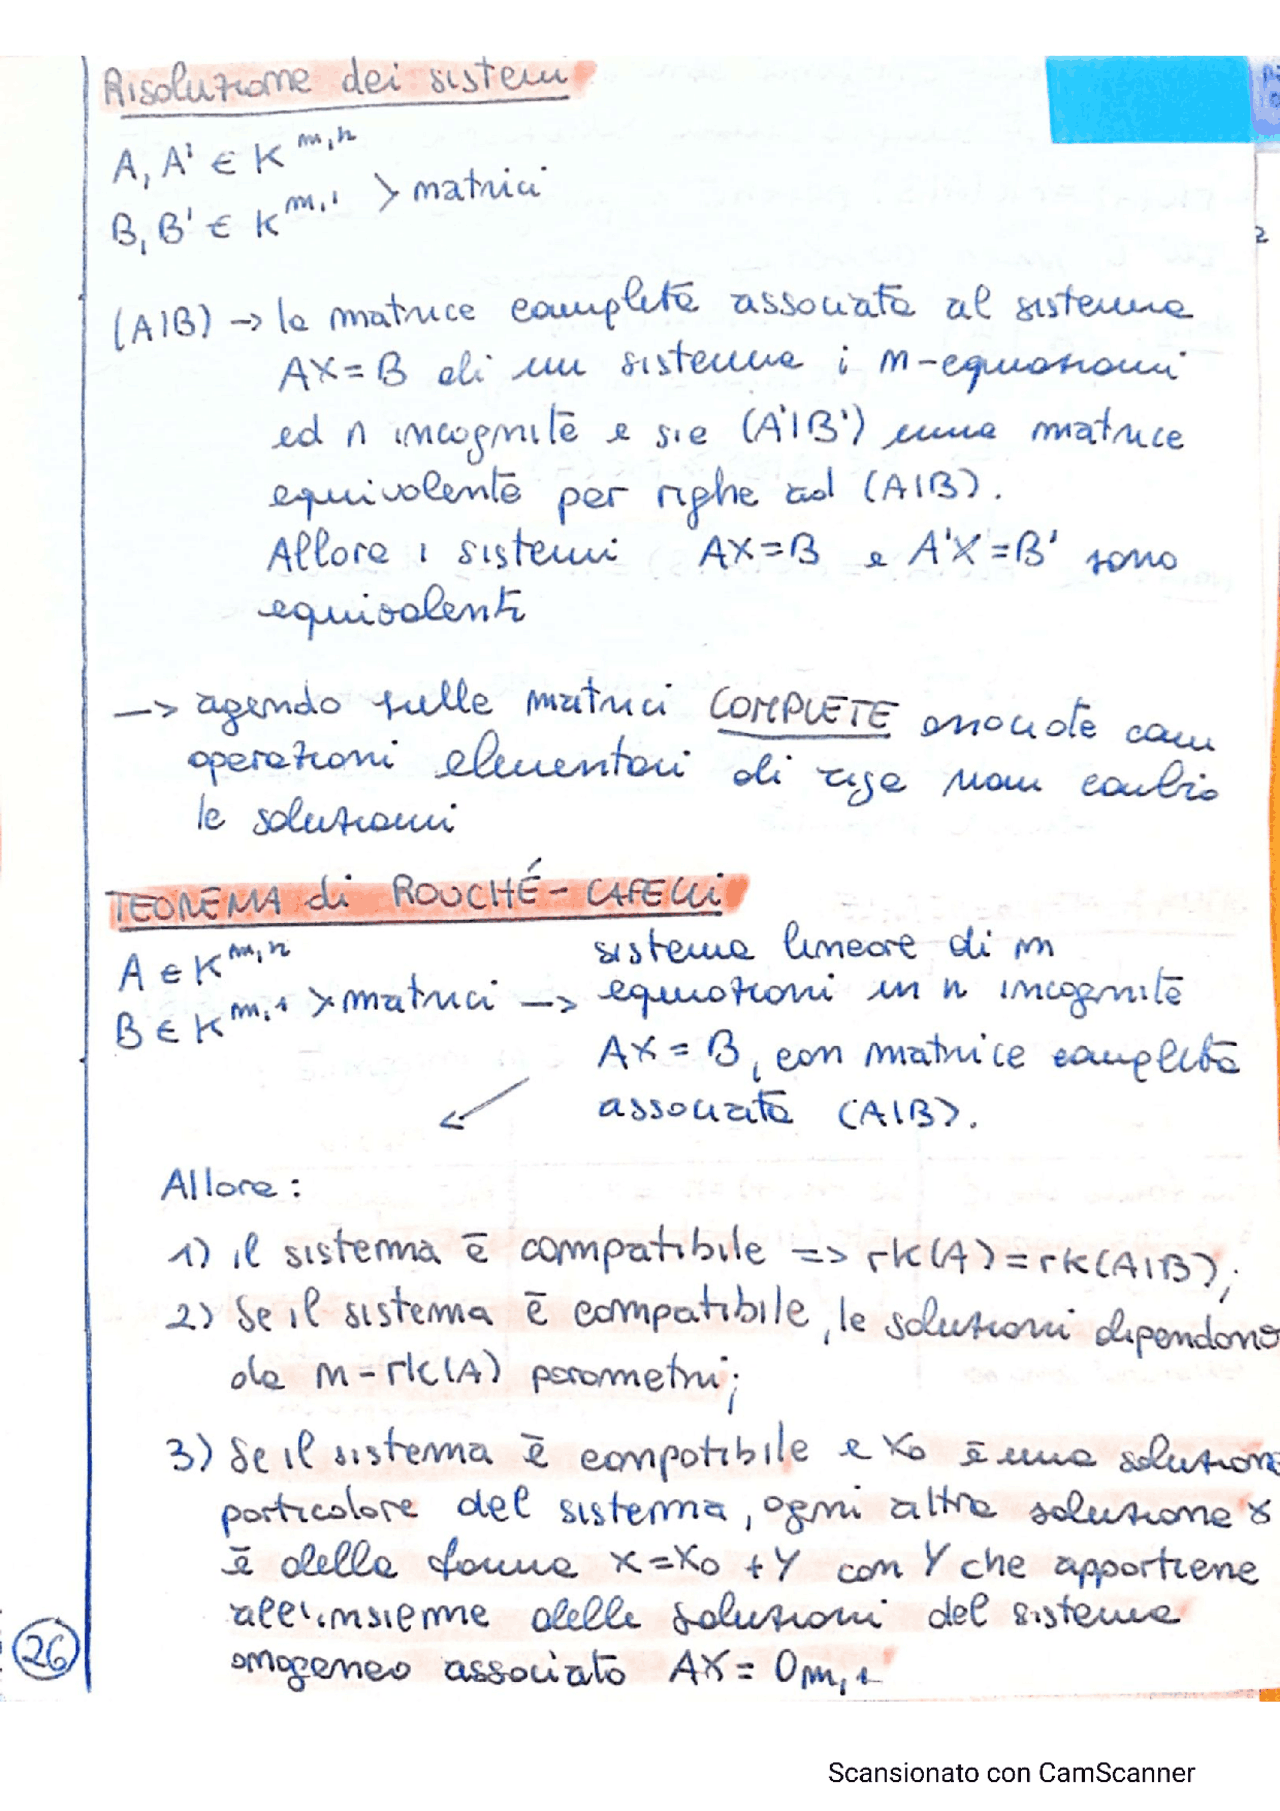 Risoluzione dei sistemi
A, A' ∈ K^m,n
B, B' ∈ K^m,1 > matrici
(A|B) -> la matrice completa associata al sistema
AX = B di un sistema i m-equazioni
ed n incognite e sia (A'|B') una matrice
equivalente per righe ad (A|B).
Allora i sistemi AX=B e A'X=B' sono
equivalenti
-> agendo sulle matrici COMPLETE associate con
operazioni elementari di riga non cambio
le soluzioni
TEOREMA di ROUCHÉ-CAPELLI
A ∈ K^m,n
B ∈ K^m,1 > matrici -> sistema lineare di m
equazioni in n incognite
AX = B, con matrice completa
associata (A|B).
Allora:
1) il sistema è compatibile => rk(A)=rk(A|B);
2) Se il sistema è compatibile, le soluzioni dipendono
da n-rk(A) parametri;
3) Se il sistema è compatibile e X₀ è una soluzione
particolare del sistema, ogni altra soluzione X
è della forma X=X₀+Y con Y che appartiene
all'insieme delle soluzioni del sistema
omogeneo associato AX = 0m,1
26
Scansionato con CamScanner